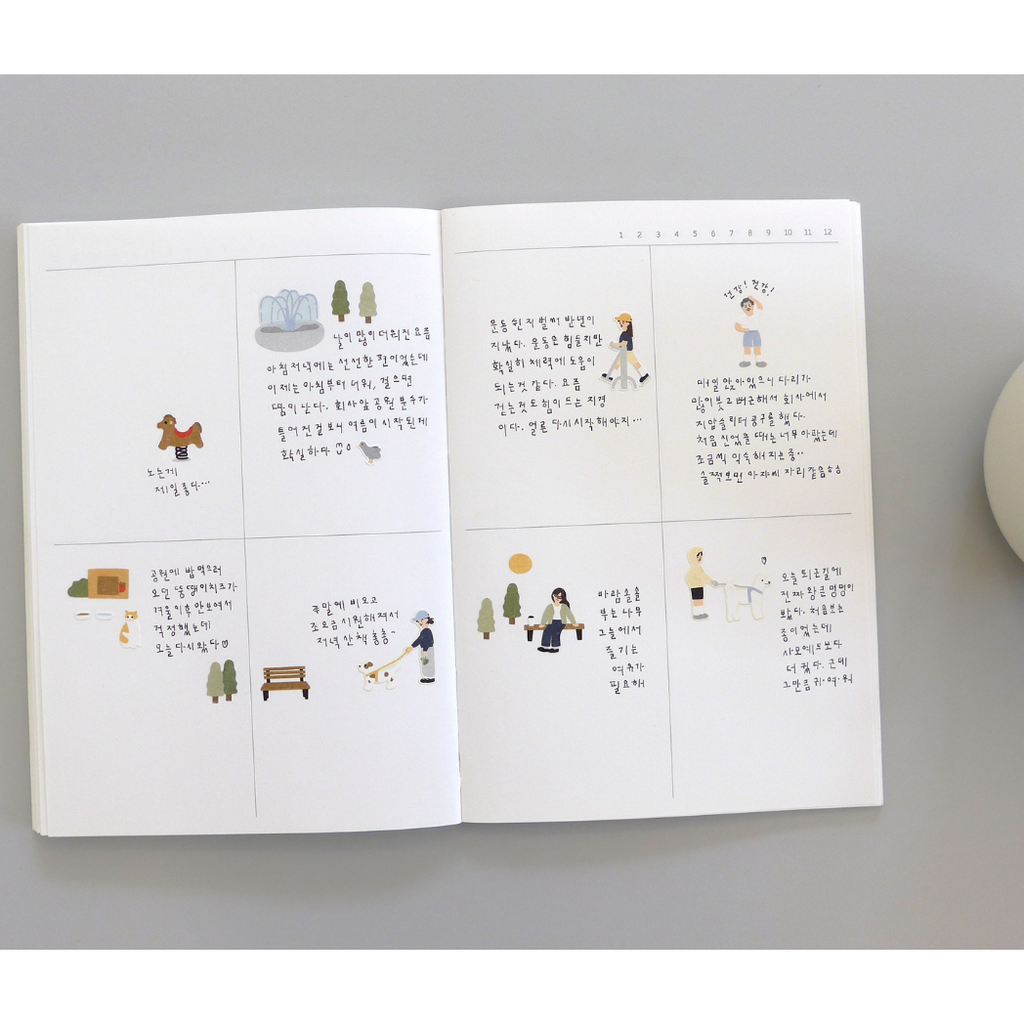 1 2 3 4 5 6 7 8 9 10 11 12
노는게
제일 좋다...
날이 많이 더워진 요즘
아침 저녁에는 선선한 편이었는데
이제는 아침부터 더워, 걸으면
땀이 난다. 회사앞 공원 분수가
틀어진걸 보니 여름이 시작된게
확실하다
공원에 밥 먹으러
오던 뚱땡이 치즈가
겨울 이후 안보여서
걱정했는데
오늘 다시 왔다♡
주말에 비오고
조오금 시원해져서
저녁 산책 총총~
운동 쉰지 벌써 반년이
지났다. 운동은 힘들지만
확실히 체력에 도움이
되는것 같다. 요즘
걷는것도 힘이 드는 지경
이다. 얼른 다시 시작해야지...
건강! 건강!
매일 앉아있으니 다리가
많이 붓고 뻐근해서 회사에서
지압슬리퍼 공구를 했다.
처음 신었을 때는 너무 아팠는데
조금씩 익숙해지는중..
슬쩍보면 아저씨 자리 같음
바람 솔솔
부는 나무
그늘에서
즐기는
여유가
필요해
오늘 퇴근길에
진짜 왕큰 멍멍이
봤다. 처음보는
종이었는데
사모예드보다
더 컸다. 근데
그만큼 귀·여·워